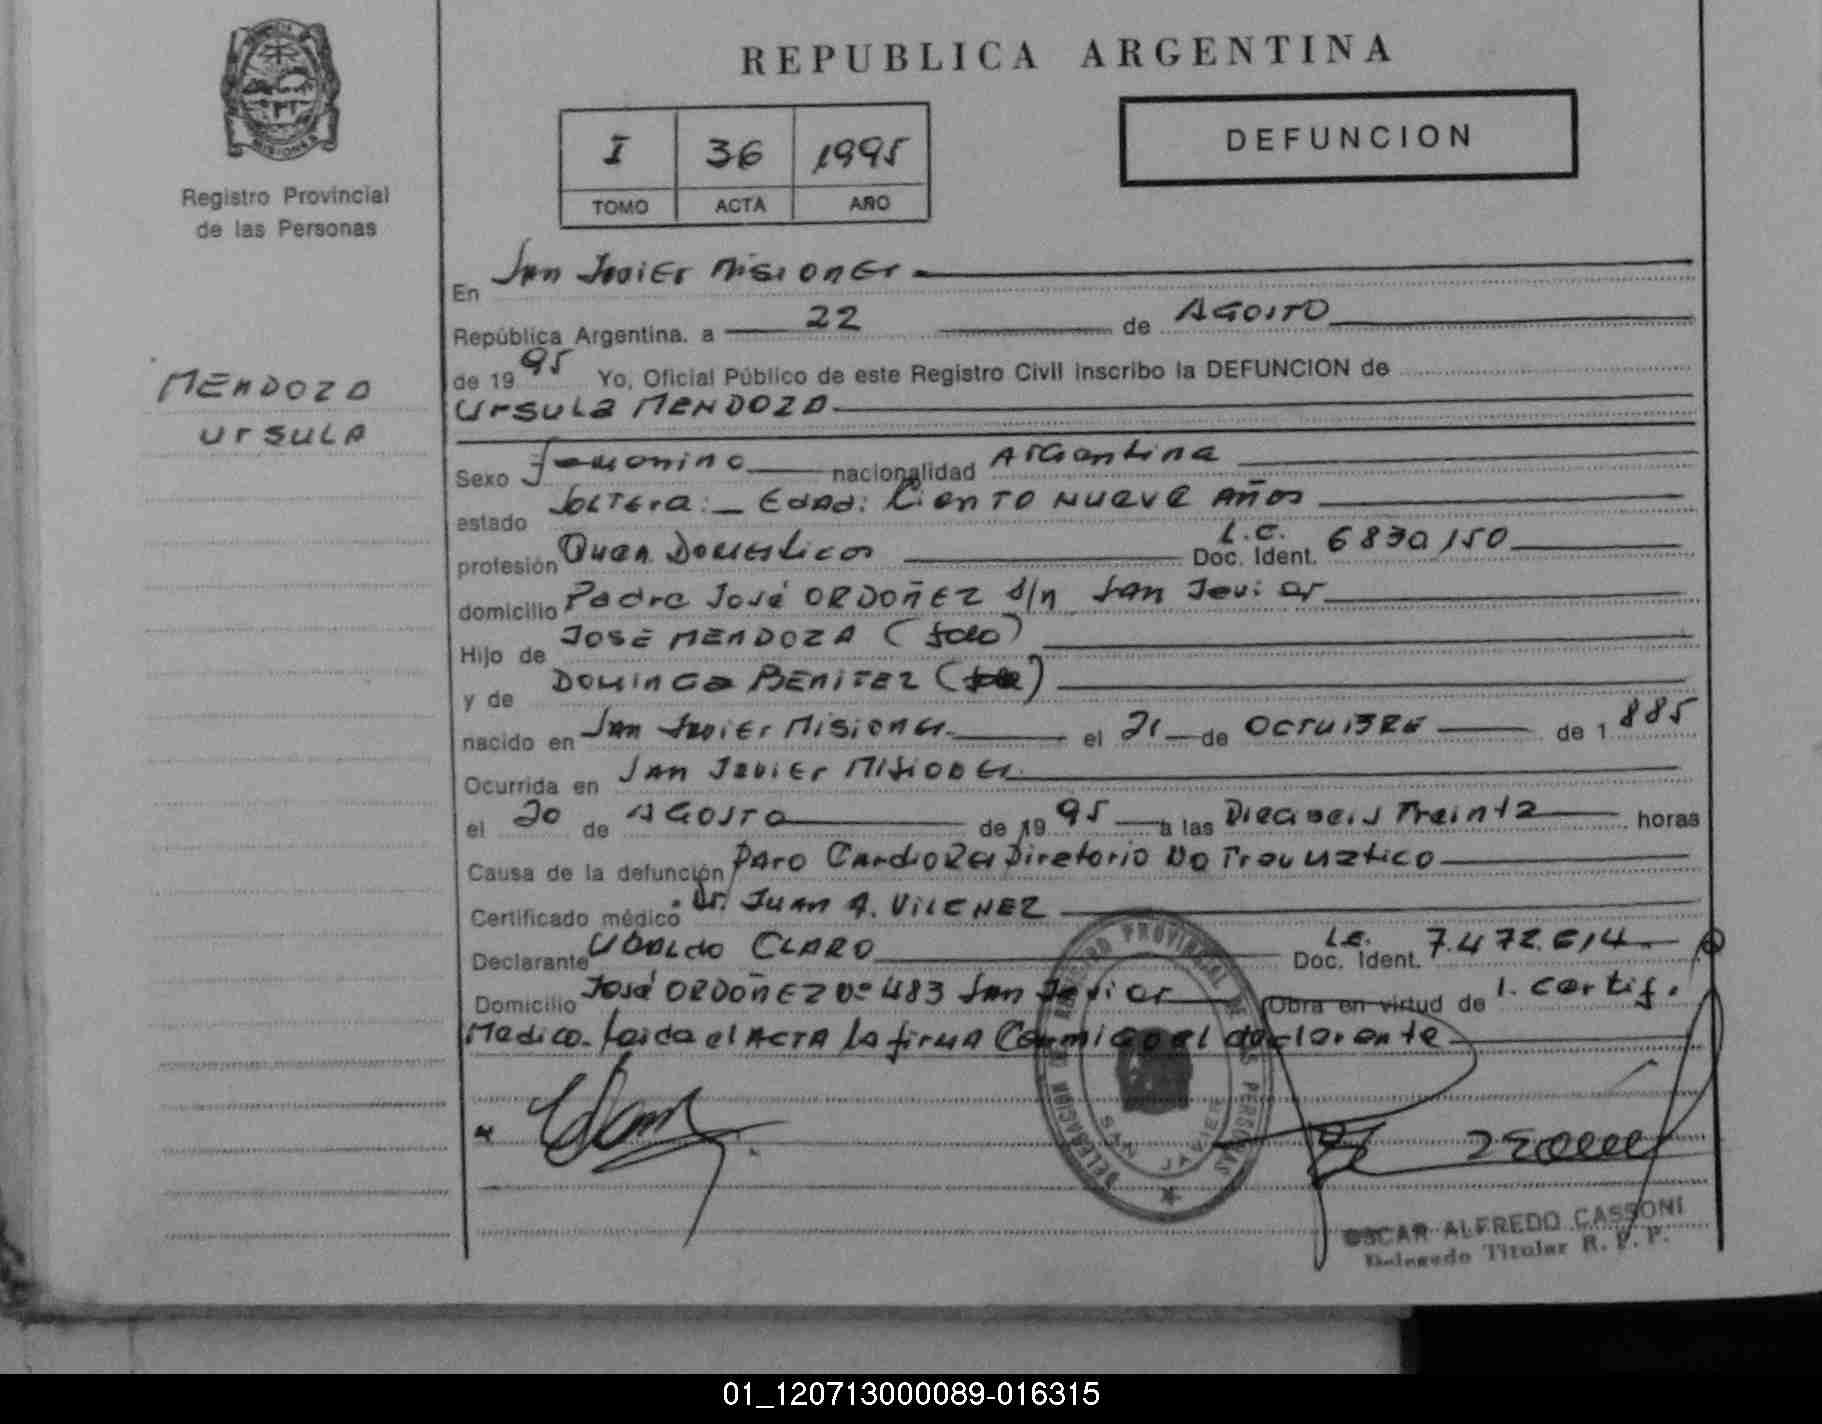 REPUBLICA ARGENTINA
I 36 1995
TOMO ACTA AÑO
DEFUNCION
MISIONES
Registro Provincial
de las Personas
MENDOZA
URSULA
En San Javier Misiones
República Argentina, a 22 de AGOSTO
de 1995 Yo, Oficial Público de este Registro Civil inscribo la DEFUNCION de
URSULA MENDOZA
Sexo femenino nacionalidad Argentina
estado Soltera: Edad: Ciento nueve años
profesión Quen. Domesticos L.C. Doc. Ident. 6830150
domicilio Padre José ORDOÑEZ s/n San Javier
Hijo de JOSÉ MENDOZA (fdo)
y de DOMINGA BENITEZ
nacido en San Javier Misiones el 21 de OCTUBRE de 1885
Ocurrida en San Javier Misiones
el 20 de AGOSTO de 1995 a las Dieciseis Treinta horas
Causa de la defunción Paro Cardio Respiratorio No Traumatico
Certificado médico Dr. JUAN A. VILCHEZ
Declarante UBALDO CLARO L.E. Doc. Ident. 7.472.614
Domicilio José ORDOÑEZ Nº 483 San Javier Obra en virtud de 1. certif.
Medico. Leida el ACTA la firma Conmigo el declarante
DELEGACION REGISTRO PROVINCIAL DE LAS PERSONAS
SAN JAVIER
OSCAR ALFREDO CASSONI
Delegado Titular R. P. P.
01_120713000089-016315